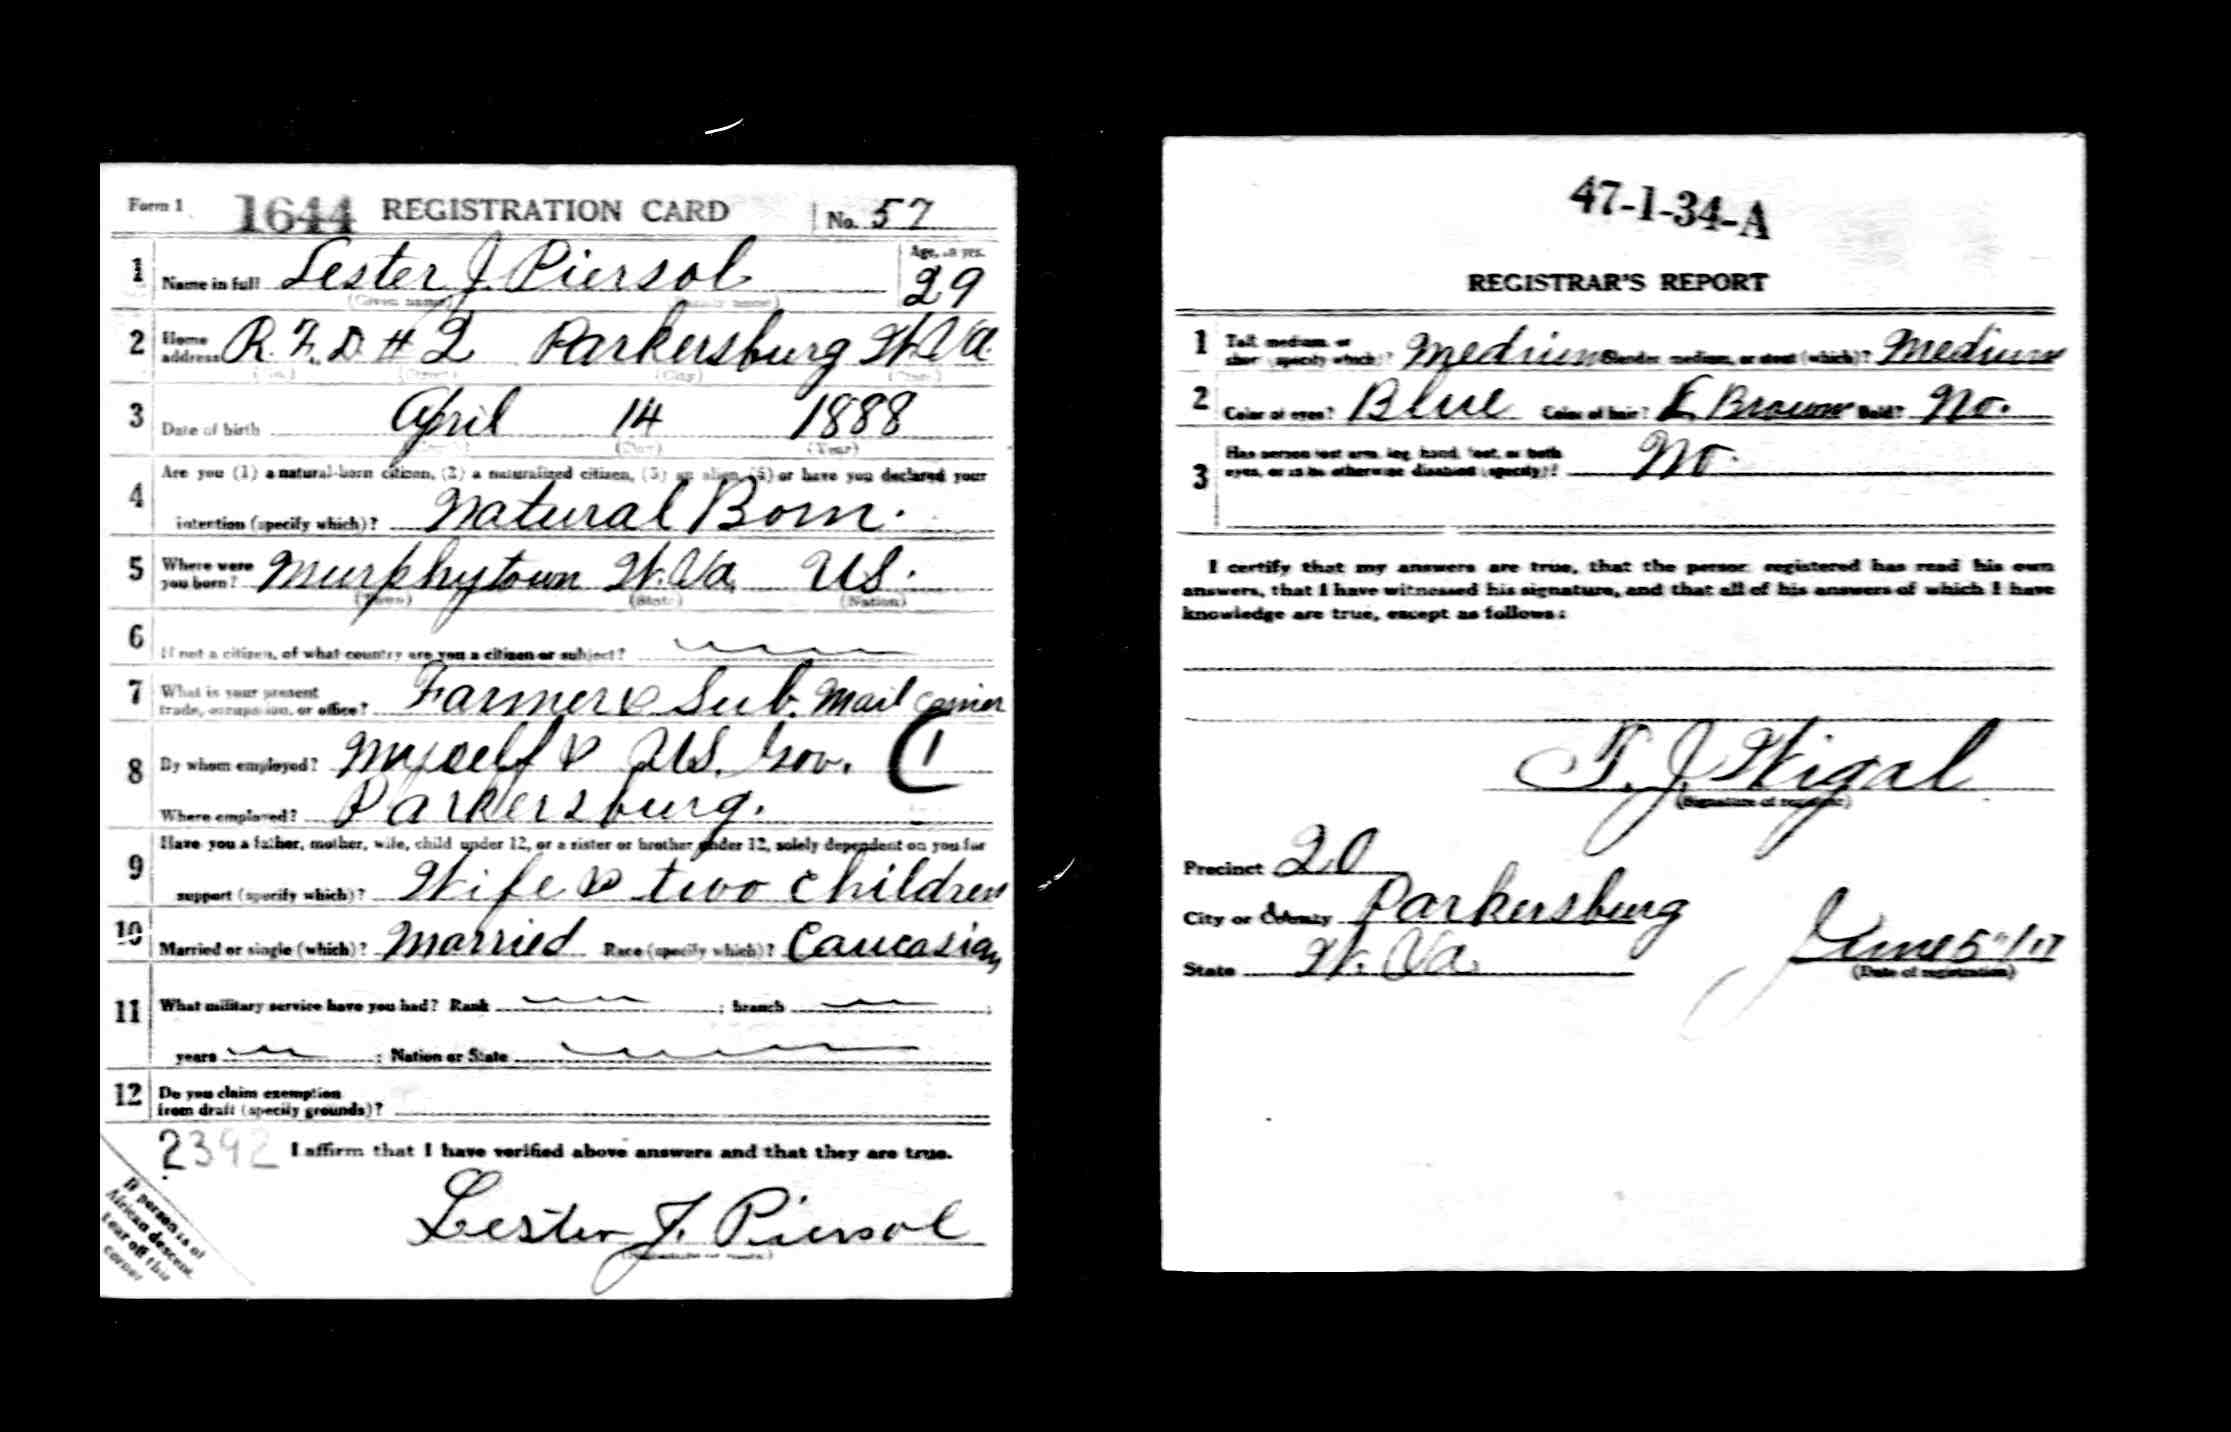 Form 1 1644 REGISTRATION CARD No. 57
1 Name in full Lester J. Piersol Age, in yrs. 29
(Given name) (Family name)
2 Home address R. F. D. # 2 Parkersburg W. Va.
(No.) (Street) (City) (State)
3 Date of birth April 14 1888
(Month) (Day) (Year)
4 Are you (1) a natural-born citizen, (2) a naturalized citizen, (3) an alien, (4) or have you declared your
intention (specify which)? Natural Born.
5 Where were you born? Murphytown W. Va. US.
(Town) (State) (Nation)
6 If not a citizen, of what country are you a citizen or subject?
7 What is your present
trade, occupation, or office? Farmer & Sub. Mail Carrier
8 By whom employed? Myself & U.S. Gov. C1
Where employed? Parkersburg.
9 Have you a father, mother, wife, child under 12, or a sister or brother under 12, solely dependent on you for
support (specify which)? Wife & two children
10 Married or single (which)? Married Race (specify which)? Caucasian
11 What military service have you had? Rank ; branch ;
years ; Nation or State
12 Do you claim exemption
from draft (specify grounds)?
2392 I affirm that I have verified above answers and that they are true.
Lester J. Piersol
(Signature or mark)
If person is of
African descent,
tear off this
corner
47-1-34-A
REGISTRAR'S REPORT
1 Tall, medium, or
short (specify which)? Medium Slender, medium, or stout (which)? Medium
2 Color of eyes? Blue Color of hair? L Brown Bald? No.
3 Has person lost arm, leg, hand, foot, or both
eyes, or is he otherwise disabled (specify)? No.
I certify that my answers are true, that the person registered has read his own
answers, that I have witnessed his signature, and that all of his answers of which I have
knowledge are true, except as follows:
T. J. Wigal
(Signature of registrar)
Precinct 20
City or County Parkersburg
State W. Va. June 5"/17
(Date of registration)